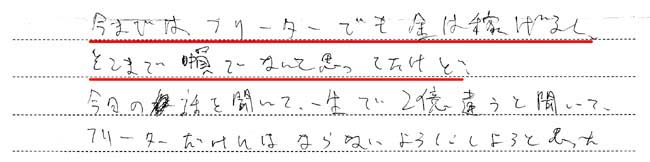 今まではフリーターでも金は稼げるし、
そこまで損でないって思ってたけど、
今日の話を聞いて、一生で2億違うと聞いて、
フリーターだけにはならないようにしようと思った